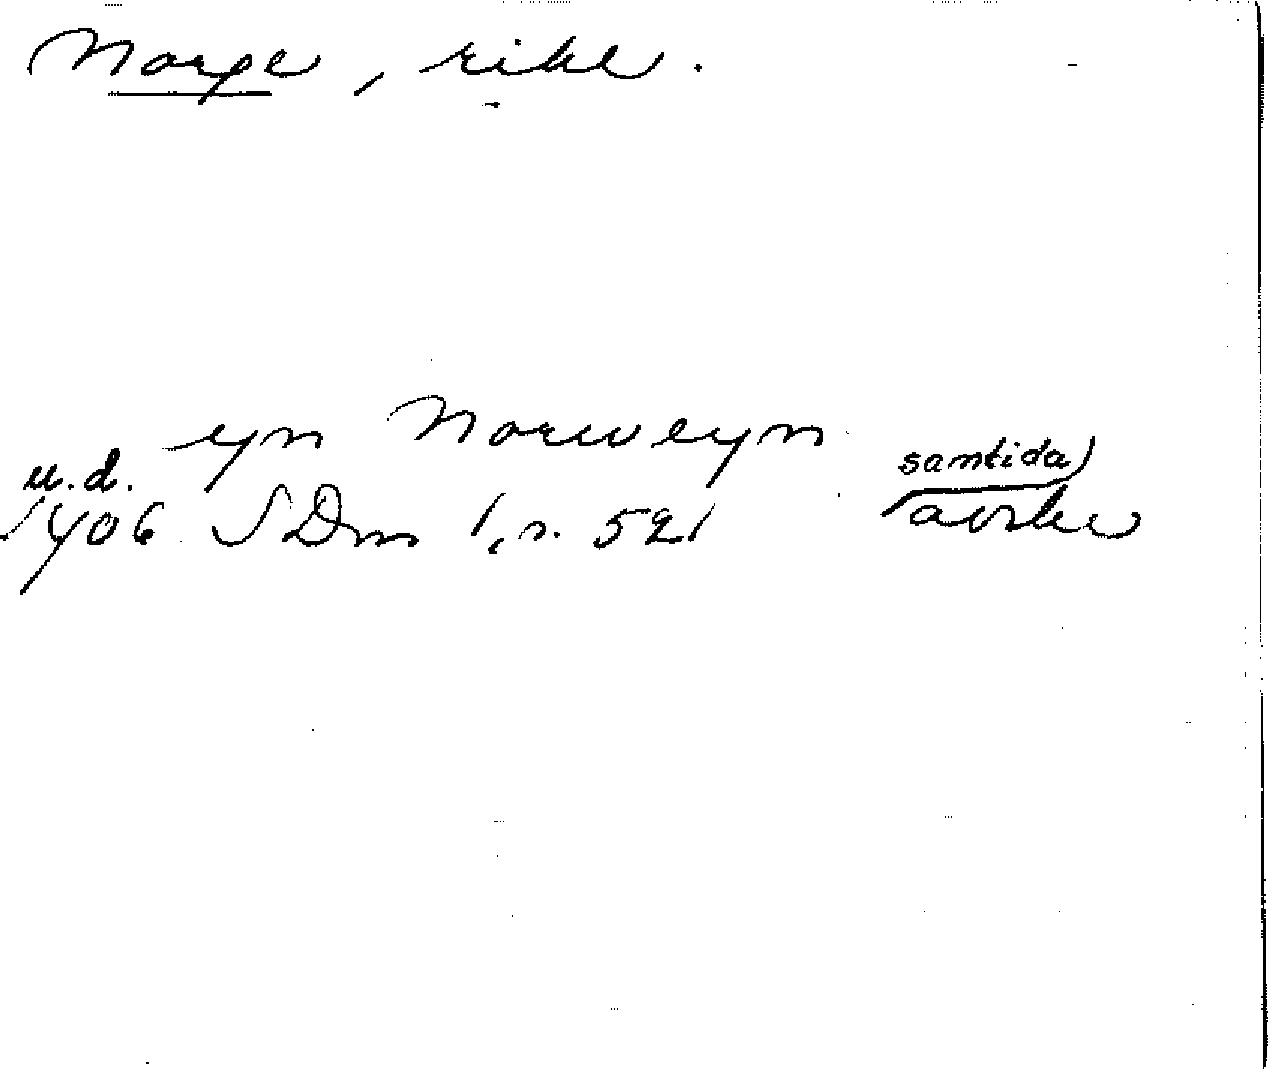 Norge, rike.
yn Norweyn
u.d. samtida)
1406 SDm 1, s. 521 avskr